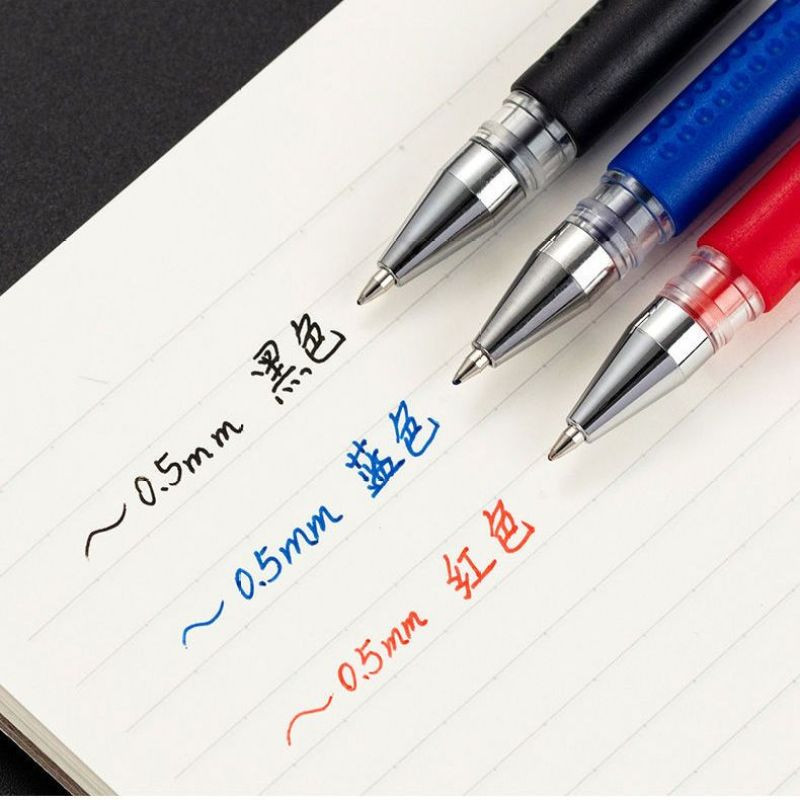 ~0.5mm 黑色
~0.5mm 蓝色
~0.5mm 红色